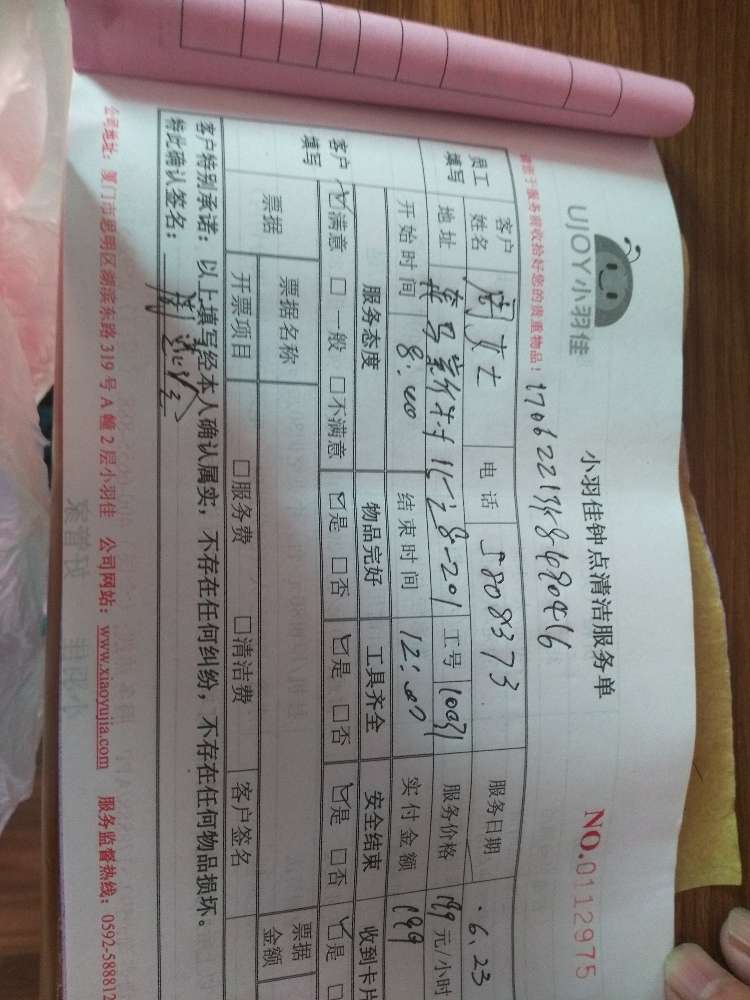 UJOY小羽佳
小羽佳钟点清洁服务单
NO.0112975
请您于服务前收拾好您的贵重物品！
员工填写
客户姓名
周女士
电话
5808373
服务日期
6.23
地址
28-201
工号
服务价格
199 元/小时
开始时间
8:00
结束时间
12:00
实付金额
199
客户填写
服务态度
物品完好
工具齐全
安全结束
收到卡片
☑满意 □一般 □不满意
☑是 □否
☑是 □否
☑是 □否
☑是
票据
票据名称
票据金额
开票项目
□服务费 □清洁费
客户签名
客户特别承诺：以上填写经本人确认属实，不存在任何纠纷，不存在任何物品损坏。
特此确认签名：
公司地址：厦门市思明区湖滨东路319号A幢2层小羽佳 公司网站：www.xiaoyujia.com 服务监督热线：0592-588812